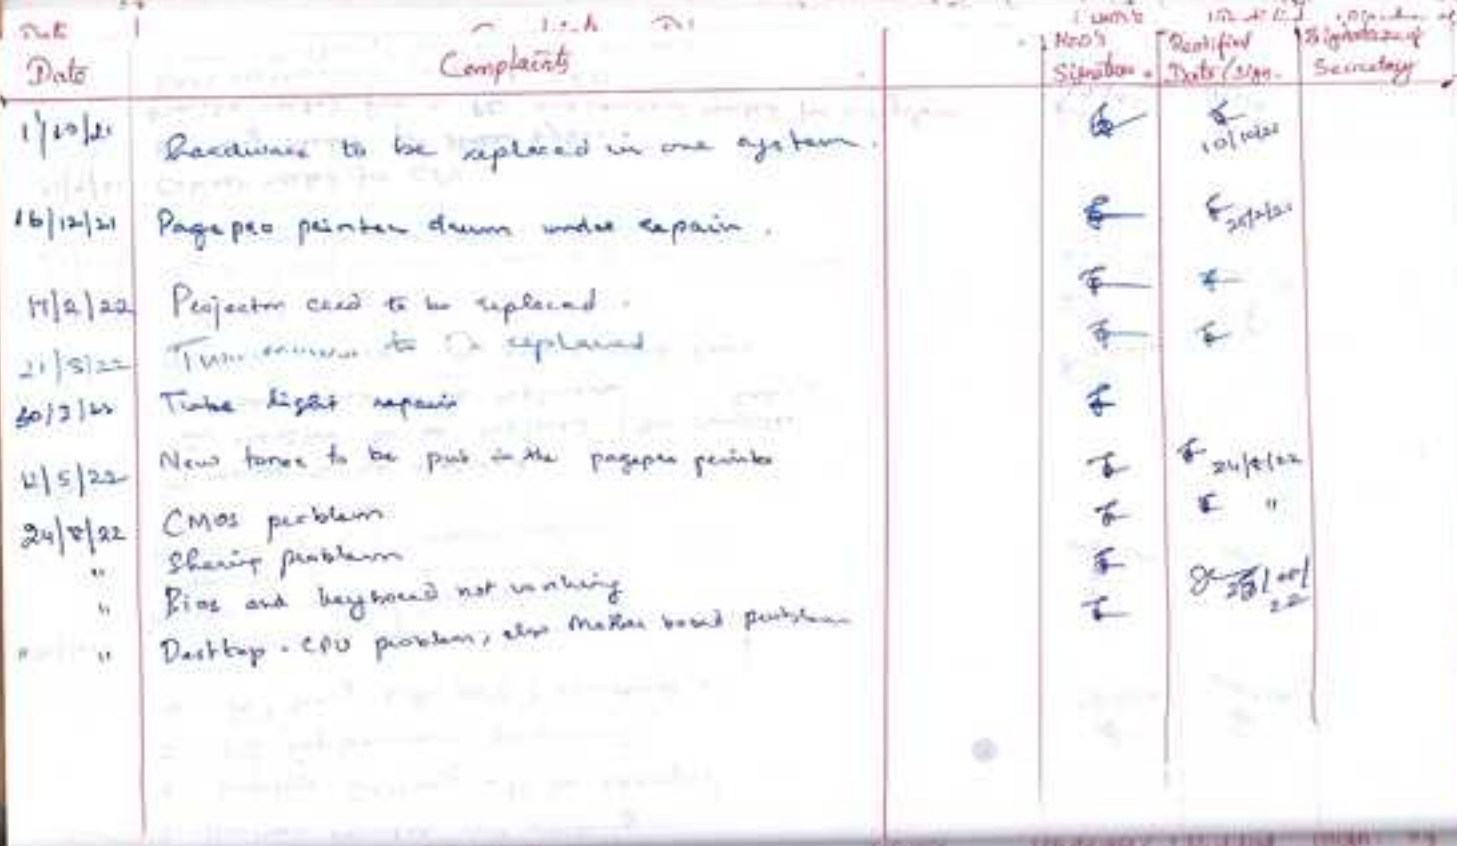 Date Complaints HOD's Rectified Signature of
Signature. Date/Sign. Secretary
1/10/21 Hardware to be replaced in one system. 10/10/21
16/12/21 Pagepro printer drum under repair.
17/2/22 Projector card to be replaced.
21/3/22 to be replaced
30/3/22 Tube light repair
12/5/22 New toner to be put in the pagepro printer 24/8/22
24/8/22 CMOS problem "
" Sharing problem
" Bios and keyboard not working
" Desktop. CPU problem, also Mother board problem